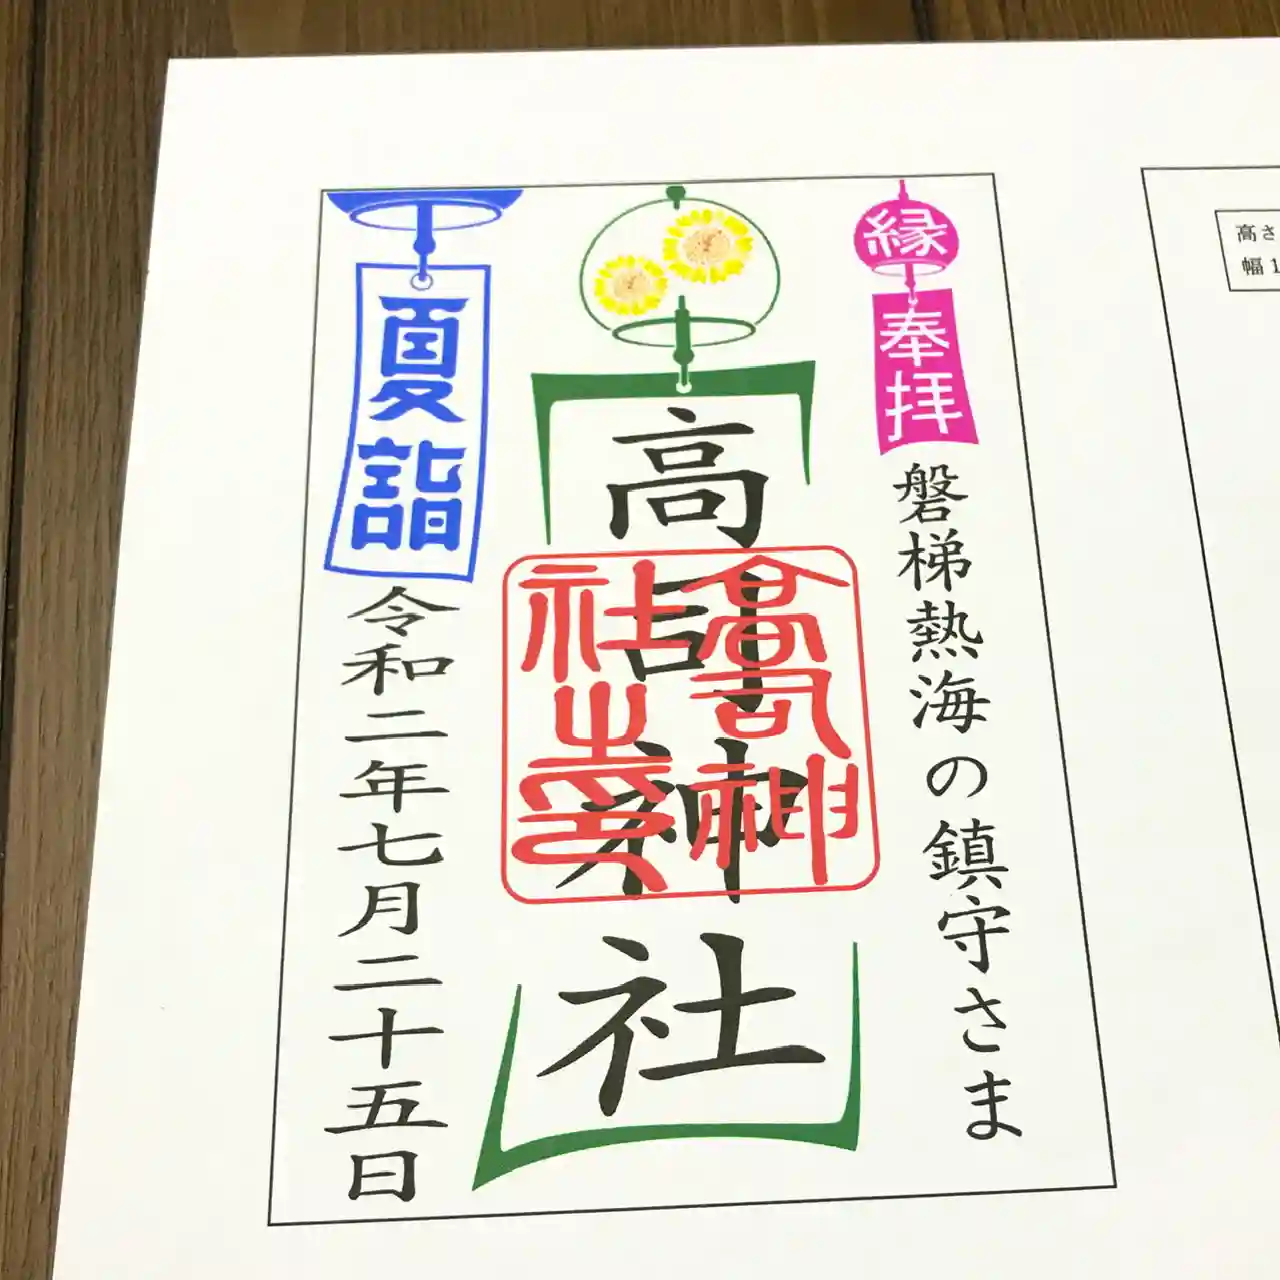 縁
奉拝
磐梯熱海の鎮守さま
高司神社
高司神社之印
夏詣
令和二年七月二十五日
高さ
幅1